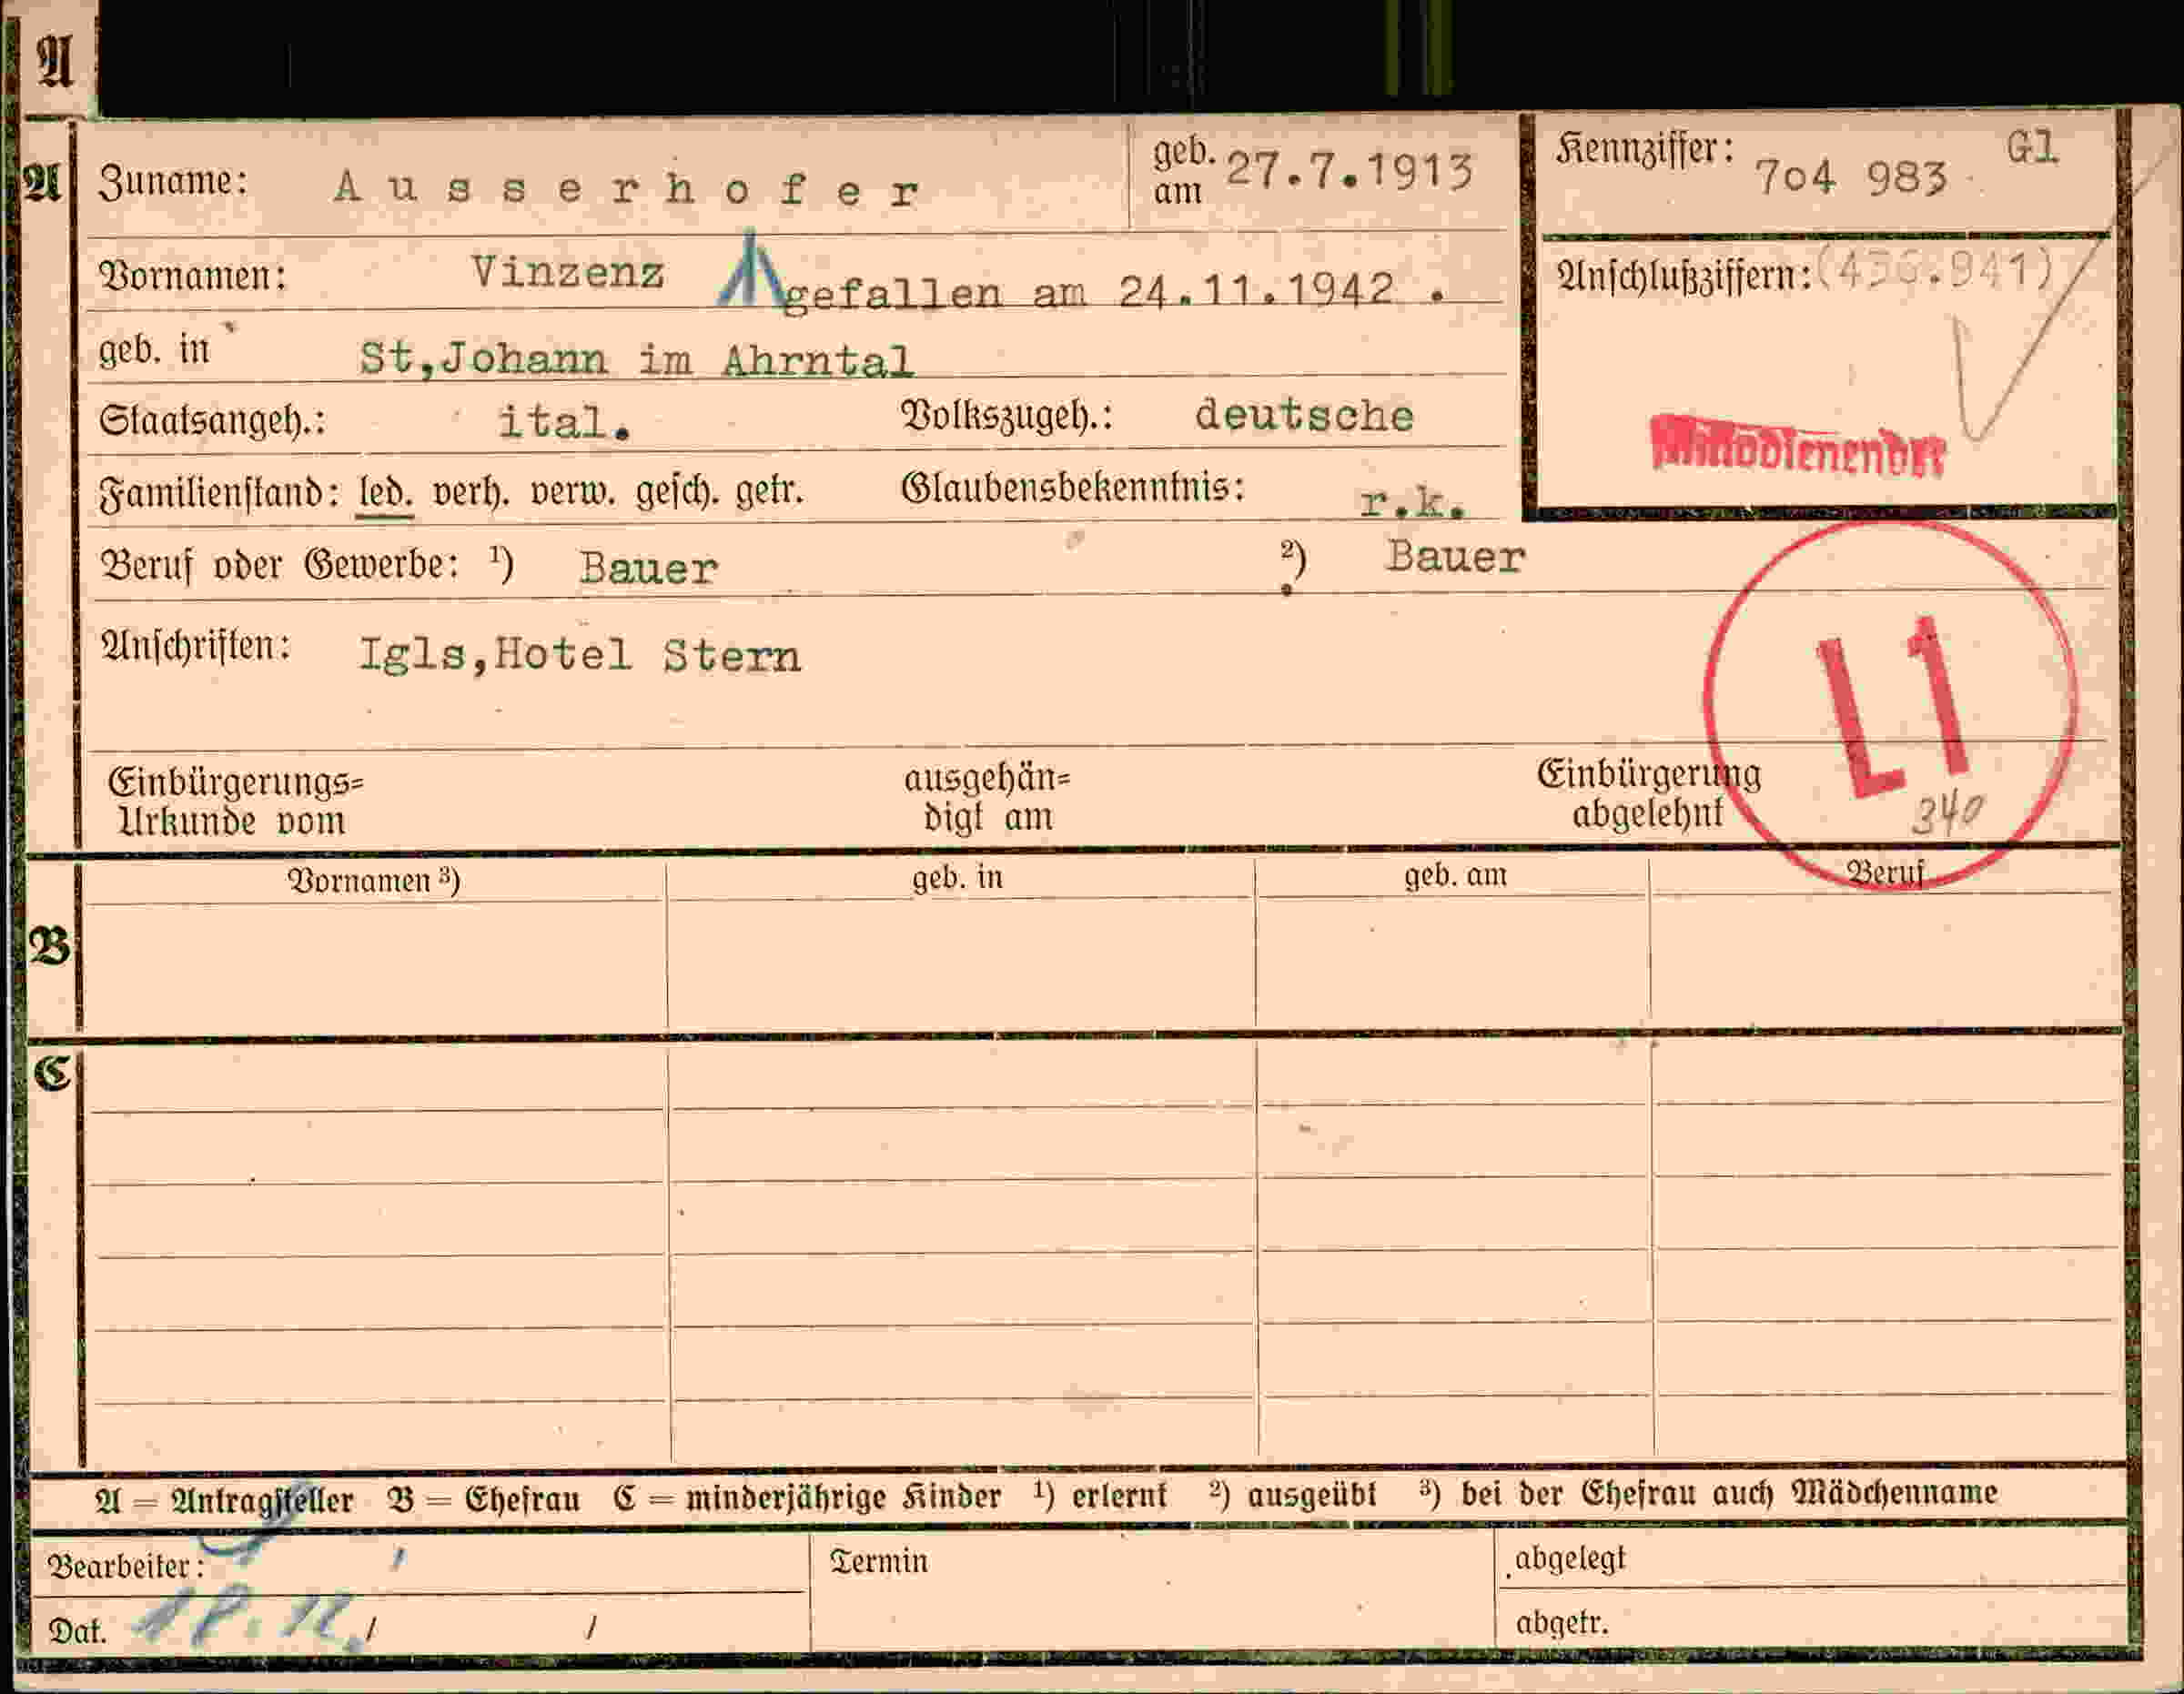 A
A Zuname: Ausserhofer geb. am 27.7.1913 Kennziffer: 7o4 983 Gl
Vornamen: Vinzenz gefallen am 24.11.1942 . Anschlußziffern: (436.941)
geb. in St,Johann im Ahrntal
Staatsangeh.: ital. Volkszugeh.: deutsche
Familienstand: led. verh. verw. gesch. getr. Glaubensbekenntnis: r.k.
Beruf oder Gewerbe: ¹) Bauer ²) Bauer
Anschriften: Igls,Hotel Stern
L1
Einbürgerungs= ausgehän= Einbürgerung
Urkunde vom digt am abgelehnt 340
Vornamen ³) geb. in geb. am Beruf
B
C
A = Antragsteller B = Ehefrau C = minderjährige Kinder ¹) erlernt ²) ausgeübt ³) bei der Ehefrau auch Mädchenname
Bearbeiter: Termin abgelegt
Dat. 18.12. / / abgetr.